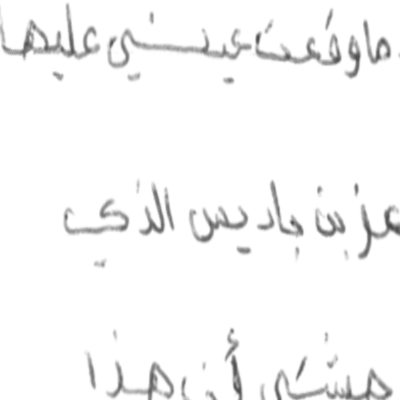 ما وقعت عيني عليها
عز بن باديس الذي
أن هذا